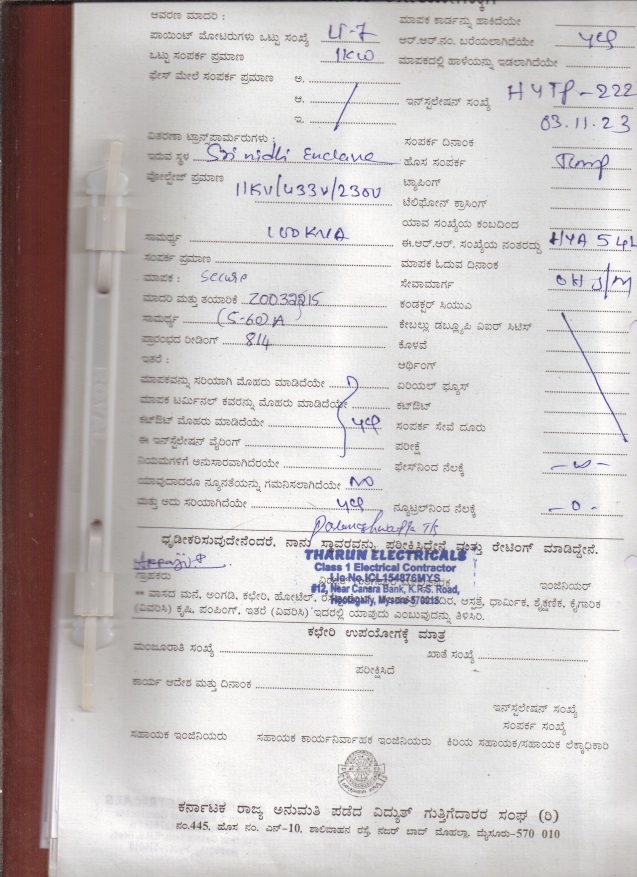 ಆವರಣ ಮಾದರಿ :
ಮಾಪಕ ಕಾರ್ಡನ್ನು ಹಾಕಿದೆಯೇ
ಪಾಯಿಂಟ್ ಮೋಟರುಗಳು ಒಟ್ಟು ಸಂಖ್ಯೆ LT-7 ಆರ್.ಆರ್.ನಂ. ಬರೆಯಲಾಗಿದೆಯೇ yes
ಒಟ್ಟು ಸಂಪರ್ಕ ಪ್ರಮಾಣ 1KW ಮಾಪಕದಲ್ಲಿ ಹಾಳೆಯನ್ನು ಇಡಲಾಗಿದೆಯೇ
ಫೇಸ್ ಮೇಲೆ ಸಂಪರ್ಕ ಪ್ರಮಾಣ ಅ.
ಆ. ಇನ್‌ಸ್ಟಲೇಷನ್ ಸಂಖ್ಯೆ HYTP-222
ಇ. 03.11.23
ವಿತರಣಾ ಟ್ರಾನ್ಸ್‌ಫಾರ್ಮರುಗಳು : ಸಂಪರ್ಕ ದಿನಾಂಕ
ಇರುವ ಸ್ಥಳ Sri nidhi Enclave ಹೊಸ ಸಂಪರ್ಕ Temp
ವೋಲ್ಟೇಜ್ ಪ್ರಮಾಣ 11KV/433V/230V ಟ್ಯಾಪಿಂಗ್
ಟೆಲಿಫೋನ್ ಕ್ರಾಸಿಂಗ್
ಯಾವ ಸಂಖ್ಯೆಯ ಕಂಬದಿಂದ
ಸಾಮರ್ಥ್ಯ 100KVA ಈ.ಆರ್.ಆರ್. ಸಂಖ್ಯೆಯ ನಂತರದ್ದು HYA 54
ಸಂಪರ್ಕ ಪ್ರಮಾಣ ಮಾಪಕ ಓದುವ ದಿನಾಂಕ
ಮಾಪಕ : Secure ಸೇವಾಮಾರ್ಗ OH S/M
ಮಾದರಿ ಮತ್ತು ತಯಾರಿಕೆ ಕಂಡಕ್ಟರ್ ಸಿಯುಎ
ಸಾಮರ್ಥ್ಯ (5-60)A ಕೇಬಲ್ಲು ಡಬ್ಲ್ಯೂಪಿ ಎಐರ್ ಸಿಟಿಸ್
ಪ್ರಾರಂಭದ ರೀಡಿಂಗ್ 814 ಕೊಳವೆ
ಇತರೆ : ಅರ್ಥಿಂಗ್
ಮಾಪಕವನ್ನು ಸರಿಯಾಗಿ ಮೊಹರು ಮಾಡಿದೆಯೇ ಏರಿಯಲ್ ಫ್ಯೂಸ್
ಮಾಪಕ ಟರ್ಮಿನಲ್ ಕವರನ್ನು ಮೊಹರು ಮಾಡಿದೆಯೇ ಕಟ್‌ಔಟ್
ಕಟ್‌ಔಟ್ ಮೊಹರು ಮಾಡಿದೆಯೇ yes ಸಂಪರ್ಕ ಸೇವೆ ದೂರು
ಈ ಇನ್‌ಸ್ಟಲೇಷನ್ ವೈರಿಂಗ್ ಪರೀಕ್ಷೆ
ನಿಯಮಗಳಿಗೆ ಅನುಸಾರವಾಗಿದೆರಯೇ ಫೇಸ್‌ನಿಂದ ನೆಲಕ್ಕೆ
ಯಾವುದಾದರೂ ನ್ಯೂನತೆಯನ್ನು ಗಮನಿಸಲಾಗಿದೆಯೇ NO
ಮತ್ತು ಅದು ಸರಿಯಾಗಿದೆಯೇ yes ನ್ಯೂಟ್ರಲ್‌ನಿಂದ ನೆಲಕ್ಕೆ -0-
ಧೃಡೀಕರಿಸುವುದೇನೆಂದರೆ, ನಾನು ಸ್ಥಾವರವನ್ನು ಪರೀಕ್ಷಿಸಿದ್ದೇನೆ ಮತ್ತು ರೇಟಿಂಗ್ ಮಾಡಿದ್ದೇನೆ.
THARUN ELECTRICALS
Class 1 Electrical Contractor
Lic No.ICL154876MYS
#12, Near Canara Bank, K.R.S. Road,
Hootagally, Mysore-570018
ಗ್ರಾಹಕರು ಇಂಜಿನಿಯರ್
** ವಾಸದ ಮನೆ, ಅಂಗಡಿ, ಕಛೇರಿ, ಹೋಟೆಲ್, ಆಸ್ಪತ್ರೆ, ಧಾರ್ಮಿಕ, ಶೈಕ್ಷಣಿಕ, ಕೈಗಾರಿಕ
(ವಿವರಿಸಿ) ಕೃಷಿ, ಪಂಪಿಂಗ್, ಇತರೆ (ವಿವರಿಸಿ) ಇದರಲ್ಲಿ ಯಾವುದು ಎಂಬುವುದನ್ನು ತಿಳಿಸಿರಿ.
ಕಛೇರಿ ಉಪಯೋಗಕ್ಕೆ ಮಾತ್ರ
ಮಂಜೂರಾತಿ ಸಂಖ್ಯೆ ಖಾತೆ ಸಂಖ್ಯೆ
ಪರೀಕ್ಷಿಸಿದೆ
ಕಾರ್ಯ ಆದೇಶ ಮತ್ತು ದಿನಾಂಕ
ಇನ್‌ಸ್ಟಲೇಷನ್ ಸಂಖ್ಯೆ
ಸಂಪರ್ಕ ಸಂಖ್ಯೆ
ಸಹಾಯಕ ಇಂಜಿನಿಯರು ಸಹಾಯಕ ಕಾರ್ಯನಿರ್ವಾಹಕ ಇಂಜಿನಿಯರು ಕಿರಿಯ ಸಹಾಯಕ/ಸಹಾಯಕ ಲೆಕ್ಕಾಧಿಕಾರಿ
ಕರ್ನಾಟಕ ರಾಜ್ಯ ಅನುಮತಿ ಪಡೆದ ವಿದ್ಯುತ್ ಗುತ್ತಿಗೆದಾರರ ಸಂಘ (ರಿ)
ನಂ.445, ಹೊಸ ನಂ. ಎನ್-10, ಶಾಲಿವಾಹನ ರಸ್ತೆ, ನಜರ್ ಬಾದ್ ಮೊಹಲ್ಲಾ, ಮೈಸೂರು-570 010